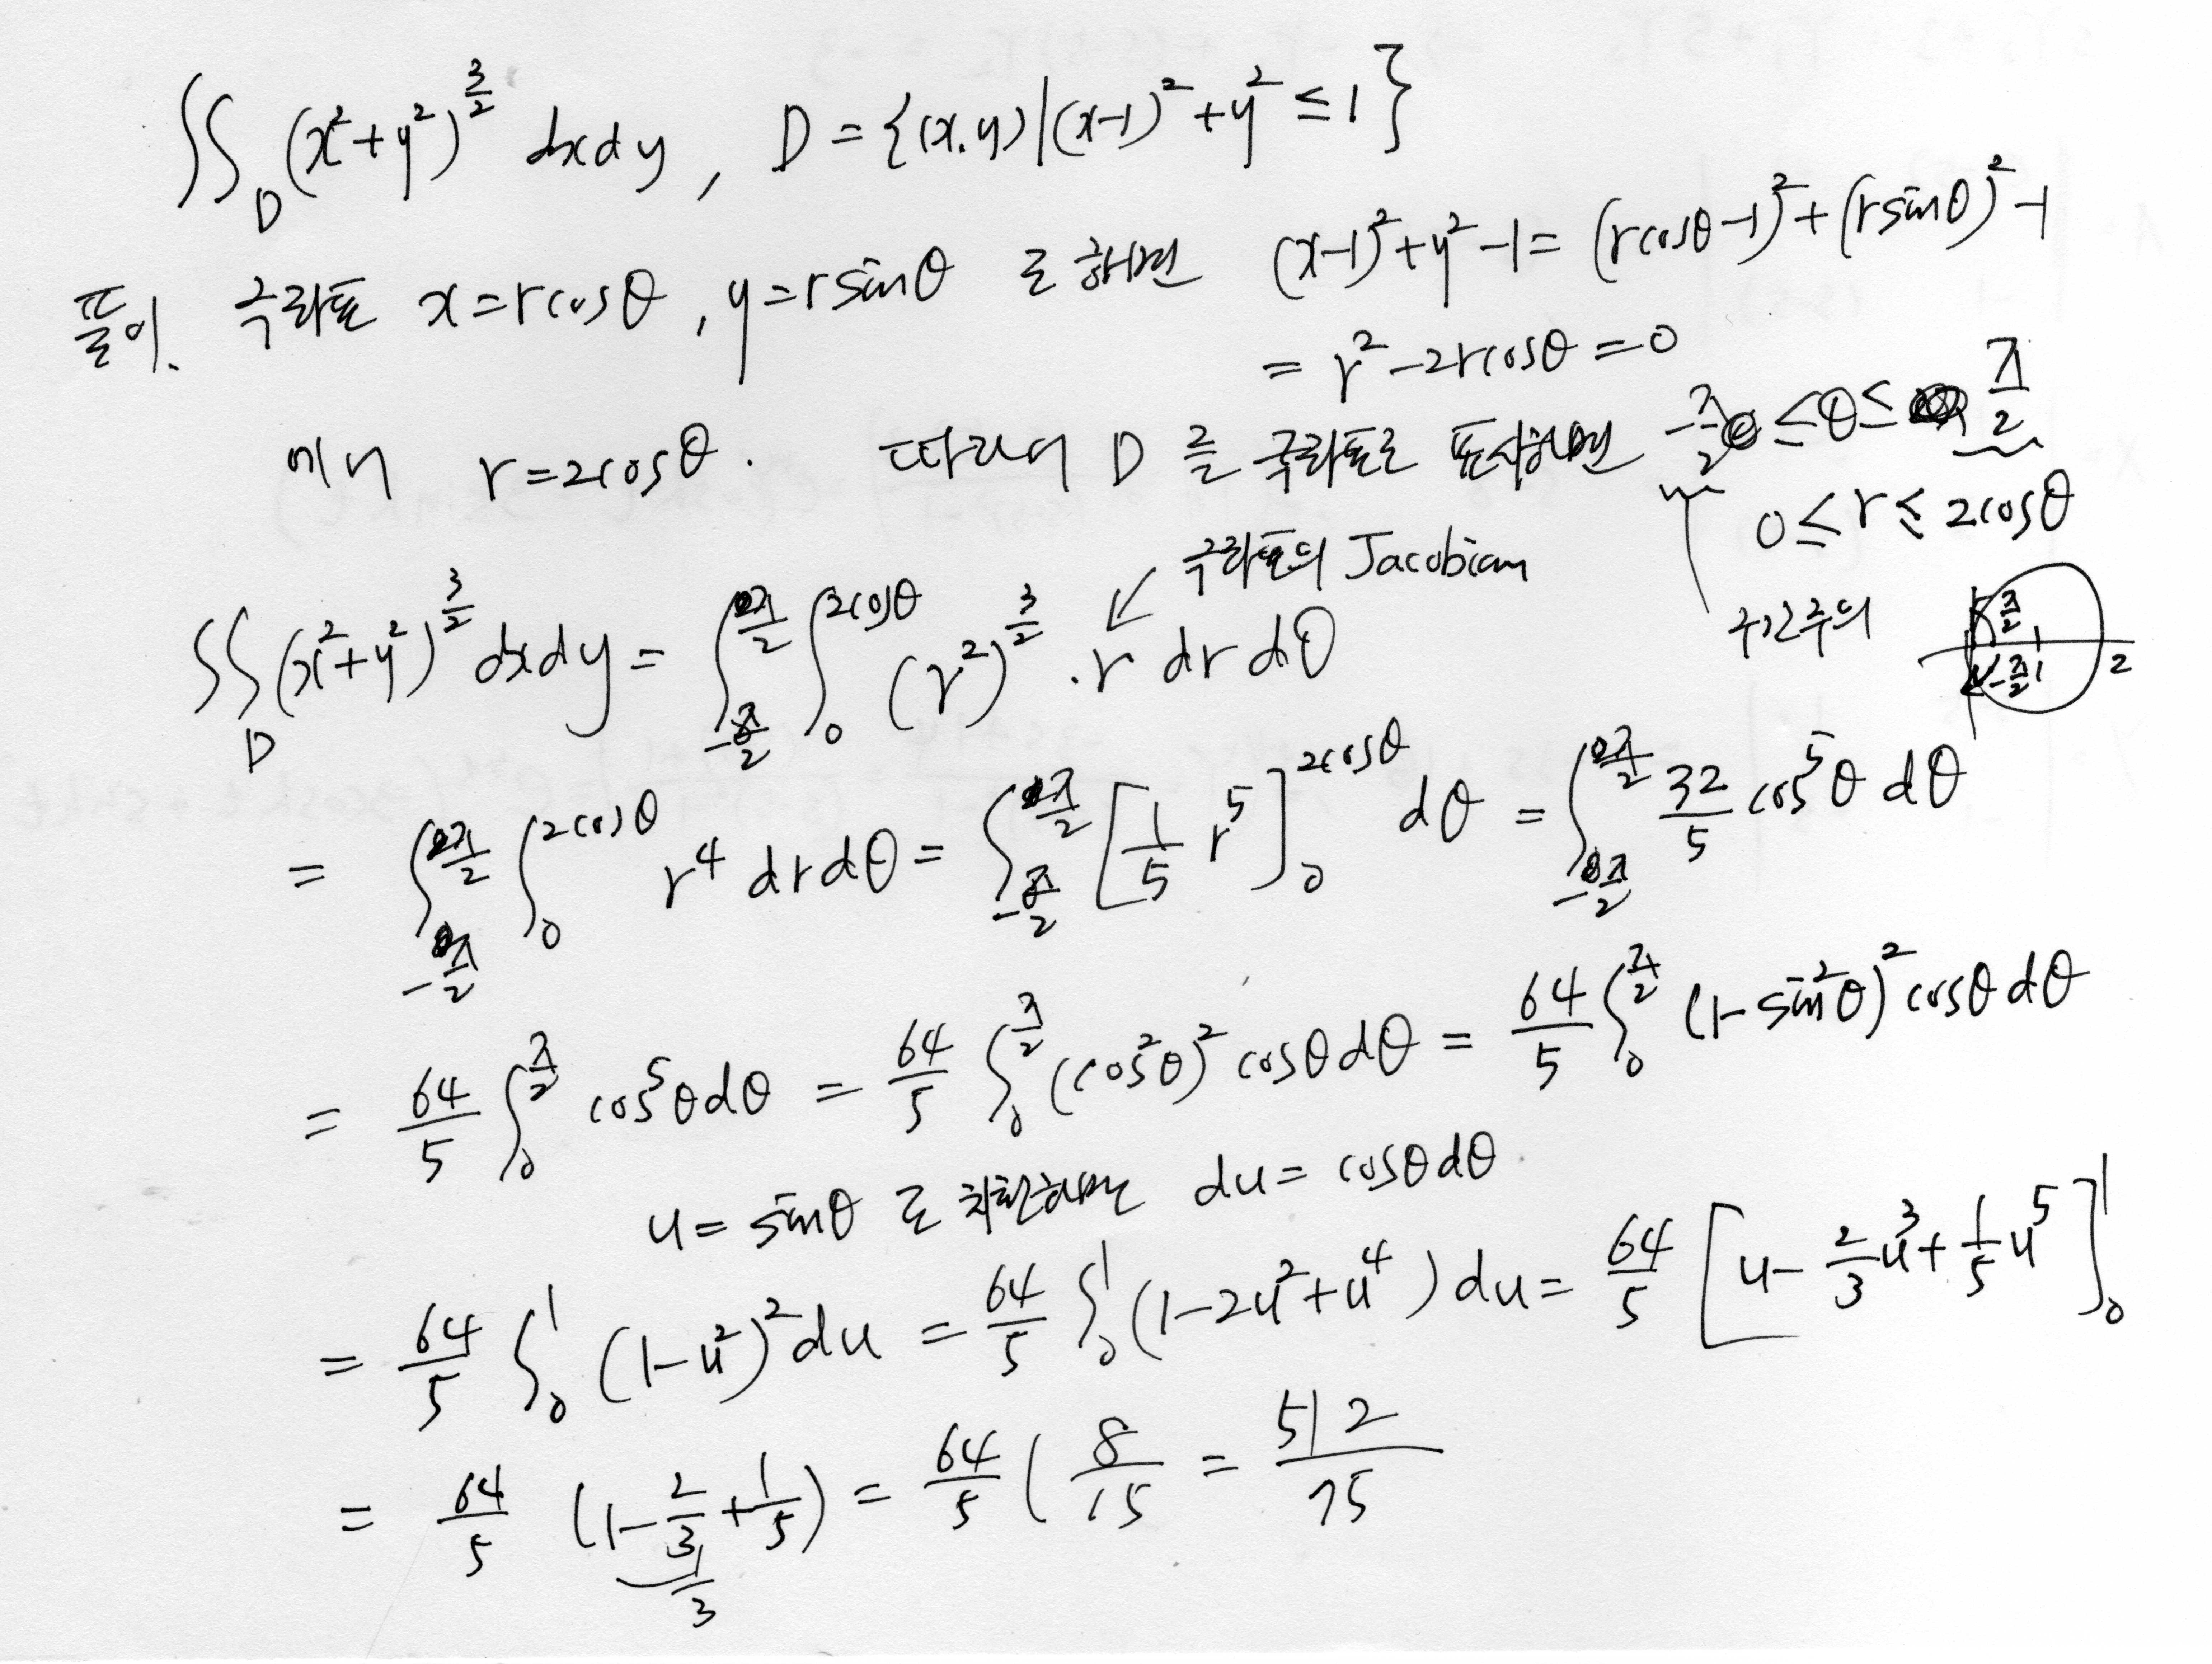 ∬_D (x²+y²)^{3/2} dxdy, D={(x,y)|(x-1)²+y²≤1}
풀이. 극좌표 x=rcosθ, y=rsinθ 로 하면 (x-1)²+y²-1=(rcosθ-1)²+(rsinθ)²-1
=r²-2rcosθ=0
에서 r=2cosθ. 따라서 D를 극좌표로 표시하면 -π/2≤θ≤π/2
0≤r≤2cosθ
극좌표의 Jacobian
구간주의 π/2 -π/2 1 2
∬_D (x²+y²)^{3/2} dxdy = ∫_{-π/2}^{π/2} ∫_0^{2cosθ} (r²)^{3/2}·r dr dθ
= ∫_{-π/2}^{π/2} ∫_0^{2cosθ} r⁴ drdθ = ∫_{-π/2}^{π/2} [1/5 r⁵]_0^{2cosθ} dθ = ∫_{-π/2}^{π/2} 32/5 cos⁵θ dθ
= 64/5 ∫_0^{π/2} cos⁵θdθ = 64/5 ∫_0^{π/2} (cos²θ)² cosθdθ = 64/5 ∫_0^{π/2} (1-sin²θ)² cosθdθ
u=sinθ 로 치환하면 du=cosθdθ.
= 64/5 ∫_0^1 (1-u²)² du = 64/5 ∫_0^1 (1-2u²+u⁴) du = 64/5 [u-2/3 u³+1/5 u⁵]_0^1
= 64/5 (1-2/3+1/5) = 64/5 ( 8/15 = 512/75
1/3